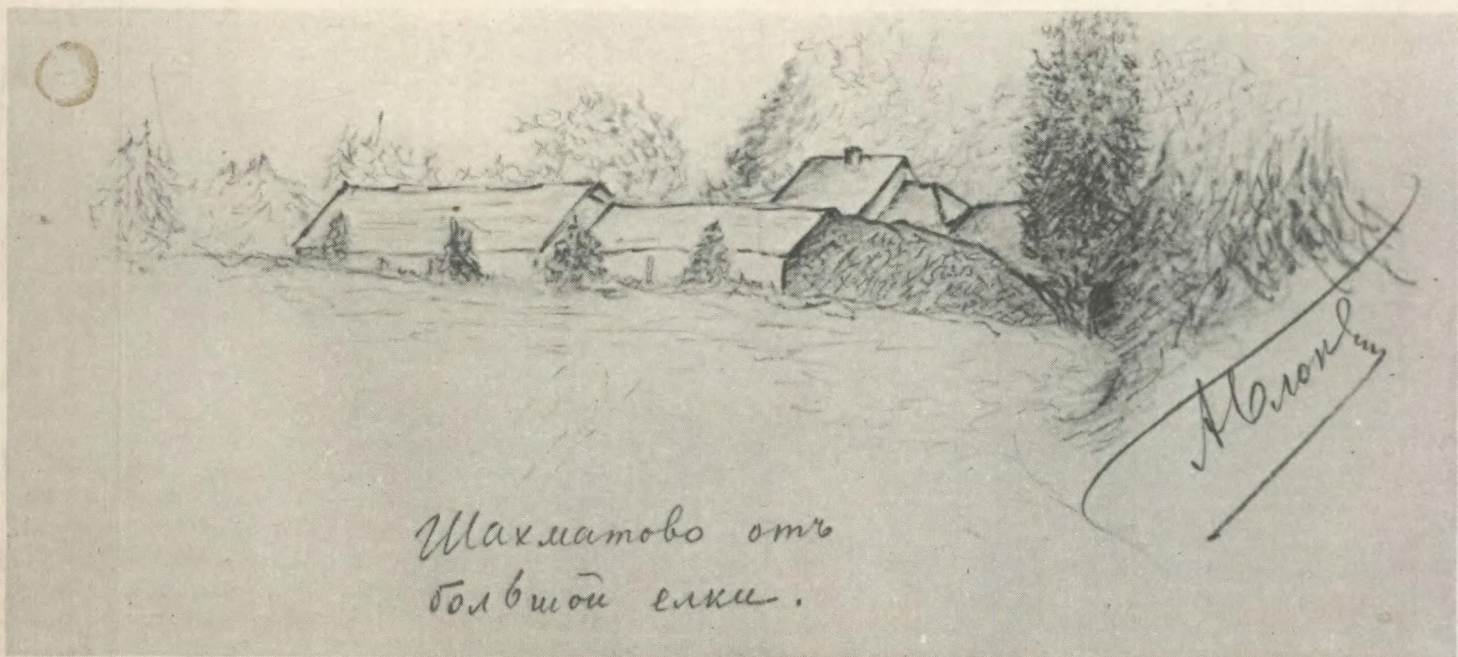 АБлокъ
Шахматово отъ
большой елки.